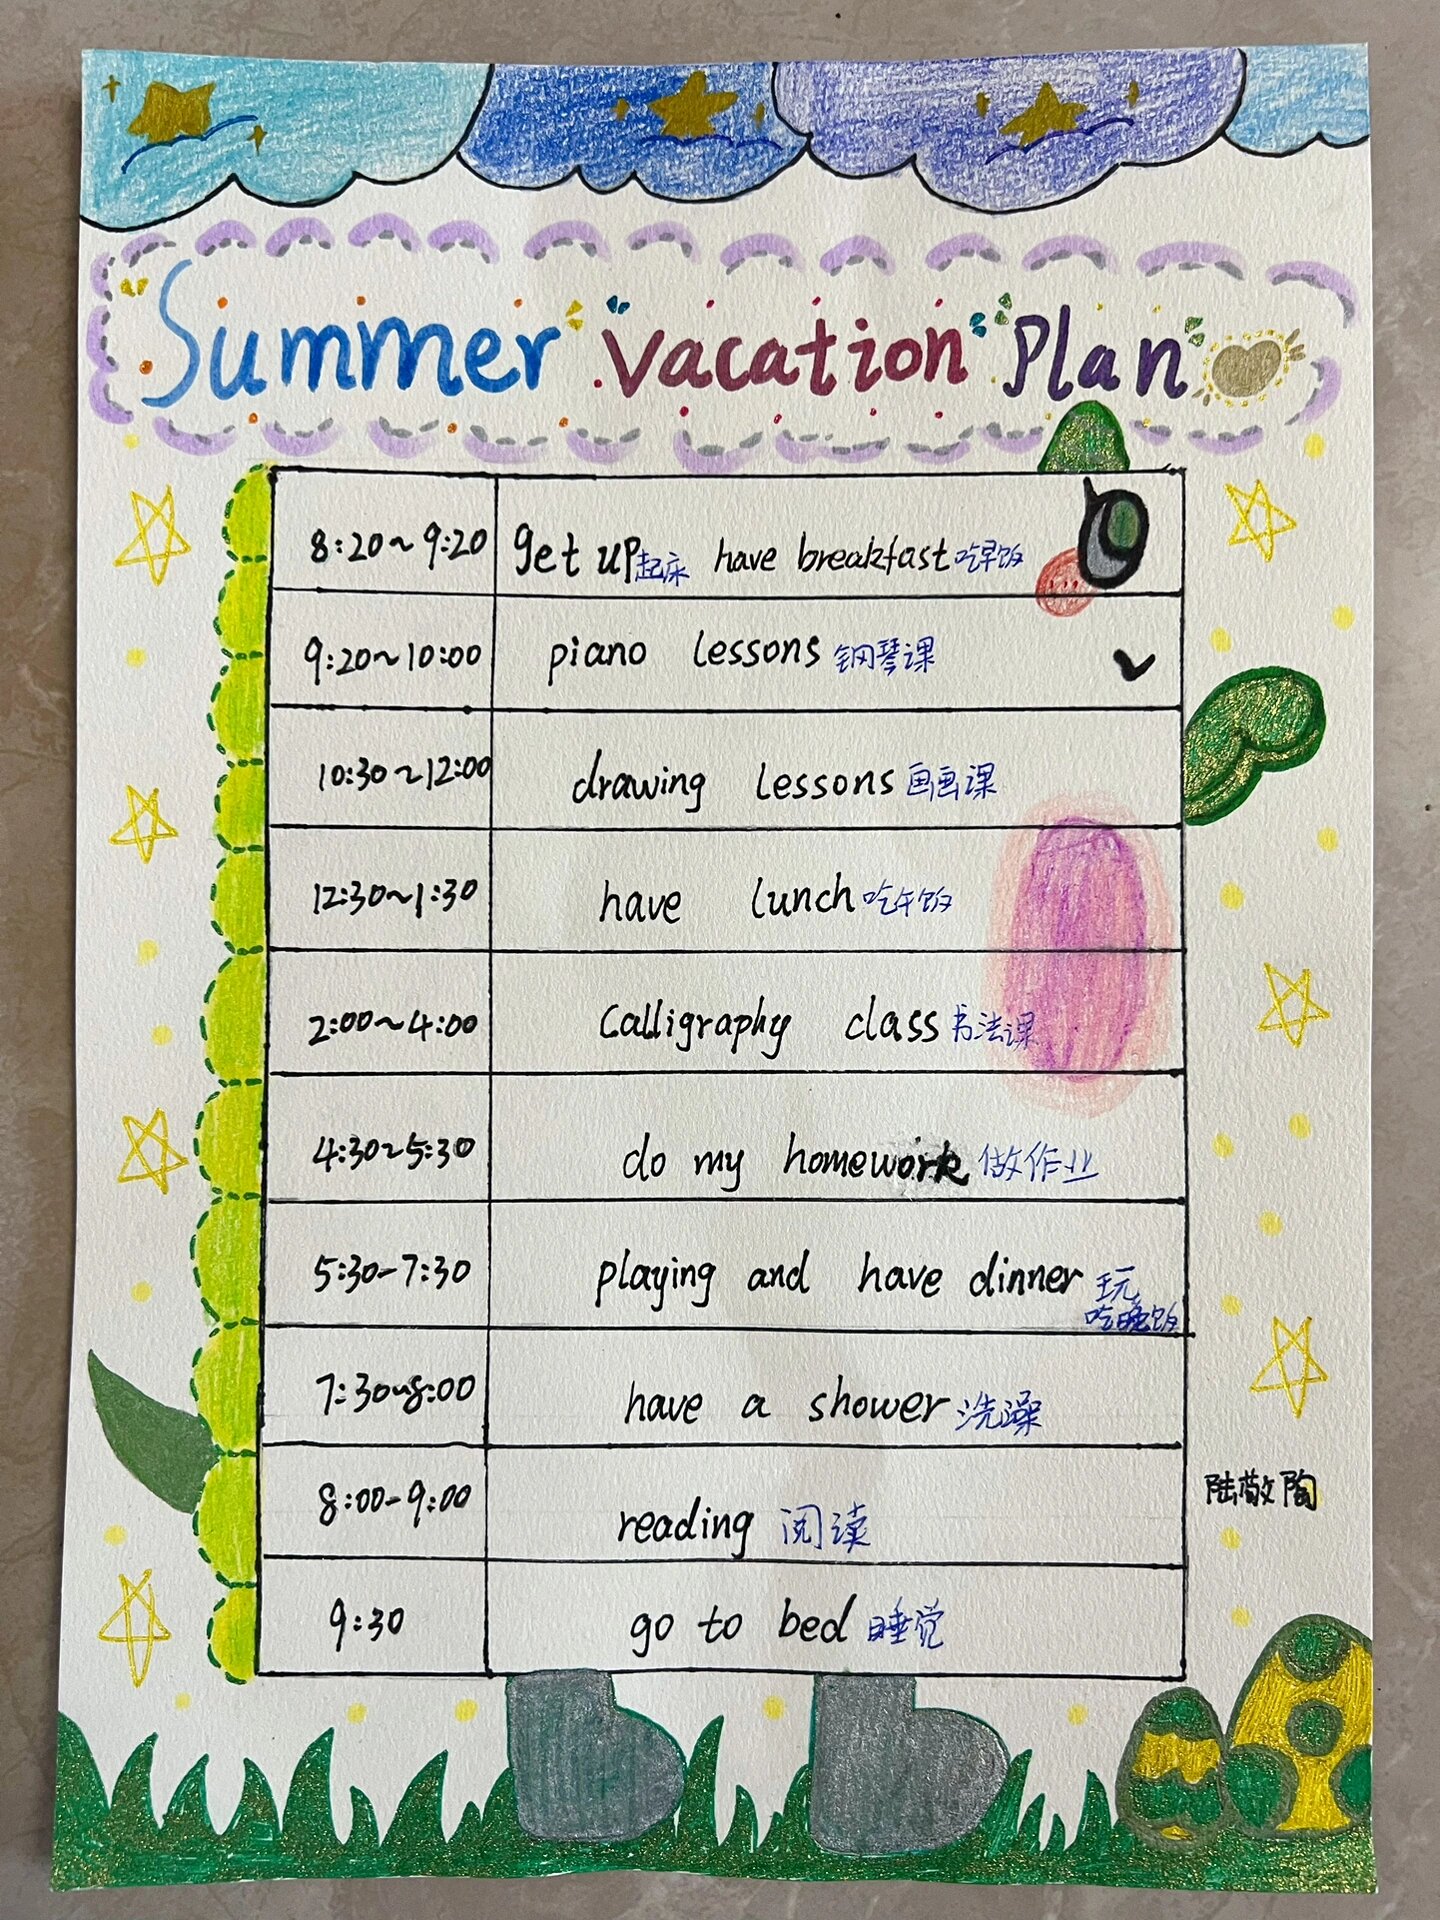 Summer Vacation Plan
8:20~9:20 get up起床 have breakfast吃早饭
9:20~10:00 piano lessons 钢琴课
10:30~12:00 drawing lessons 画画课
12:30~1:30 have lunch 吃午饭
2:00~4:00 Calligraphy class 书法课
4:30~5:30 do my homework 做作业
5:30-7:30 playing and have dinner 玩
吃晚饭
7:30~8:00 have a shower 洗澡
8:00-9:00 reading 阅读
陆敬陶
9:30 go to bed 睡觉